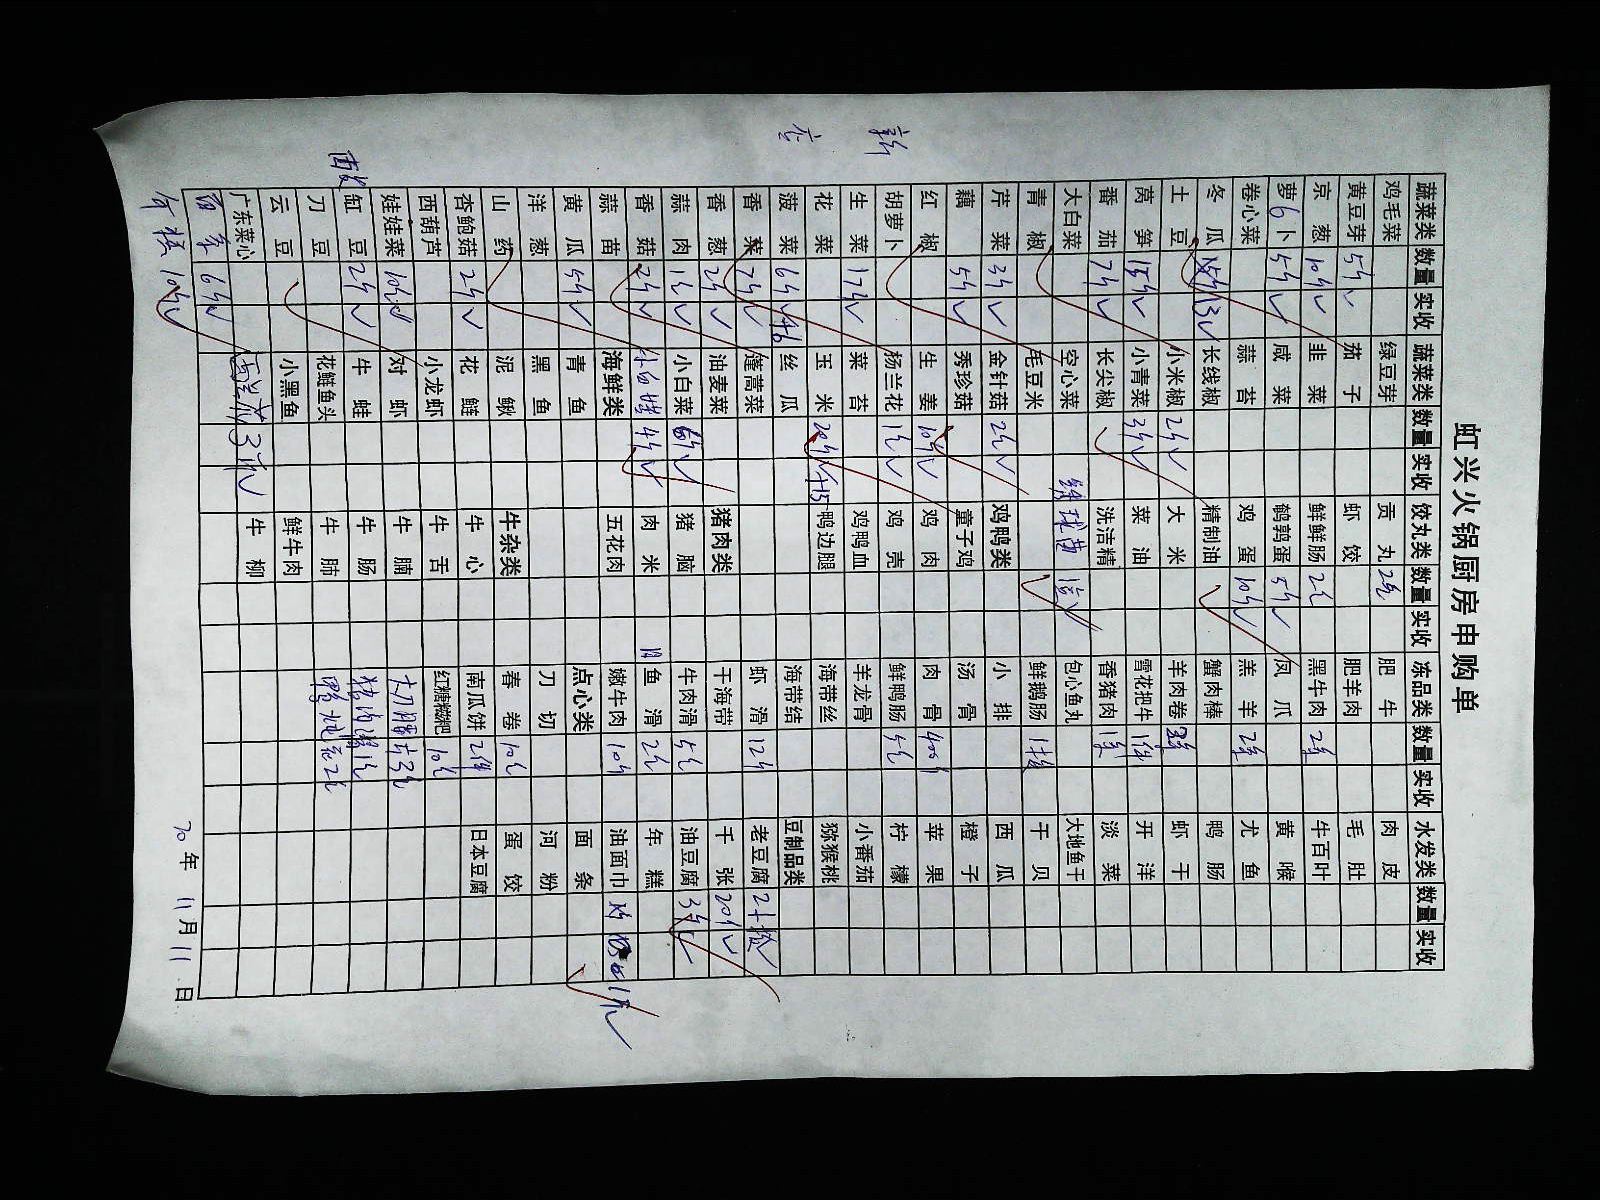 虹兴火锅厨房申购单
新店
蔬菜类 数量 实收 蔬菜类 数量 实收 饺丸类 数量 实收 冻品类 数量 实收 水发类 数量 实收
鸡毛菜 绿豆芽 贡丸 肥牛 肉皮
黄豆芽 5 茄子 虾饺 肥羊肉 毛肚
京葱 10 韭菜 鲜鲜肠 黑牛肉 牛百叶
萝卜 5 咸菜 鹌鹑蛋 5 凤爪 黄喉
卷心菜 蒜苔 鸡蛋 10 羔羊 尤鱼
冬瓜 长线椒 精制油 蟹肉棒 鸭肠
土豆 小米椒 2 大米 羊肉卷 虾干
莴笋 15 小青菜 3 菜油 雪花把牛 1件 开洋
番茄 7 长尖椒 洗洁精 香猪肉 淡菜
大白菜 空心菜 包心鱼丸 大地鱼干
青椒 毛豆米 鲜鹅肠 干贝
芹菜 3 金针菇 2 鸡鸭类 小排 西瓜
藕 5 秀珍菇 童子鸡 汤骨 橙子
红椒 生姜 10 鸡肉 肉骨 苹果
胡萝卜 杨兰花 1 鸡壳 鲜鸭肠 5 柠檬
生菜 17 菜苔 鸡鸭血 羊龙骨 小番茄
花菜 玉米 20 鸭边腿 海带丝 猕猴桃
菠菜 6 丝瓜 海带结 豆制品类
香菜 7 蓬蒿菜 虾滑 12 老豆腐 2
香葱 2 油麦菜 猪肉类 干海带 千张 20
蒜肉 1 小白菜 6 猪脑 牛肉滑 5 油豆腐 3
香菇 2 4 肉米 鱼滑 2 年糕
蒜苗 海鲜类 五花肉 嫩牛肉 10 油面巾
黄瓜 5 青鱼 点心类 面条
洋葱 黑鱼 刀切 河粉
山药 泥鳅 牛杂类 春卷 10 蛋饺
杏鲍菇 2 花鲢 牛心 南瓜饼 2件 日本豆腐
西葫芦 小龙虾 牛舌 红糖糍粑 10
娃娃菜 10 对虾 牛腩
缸豆 2 牛蛙 牛肠
刀豆 花鲢鱼头 牛肺
云豆 小黑鱼 鲜牛肉
广东菜心 3 牛柳
6
10
20年11月11日